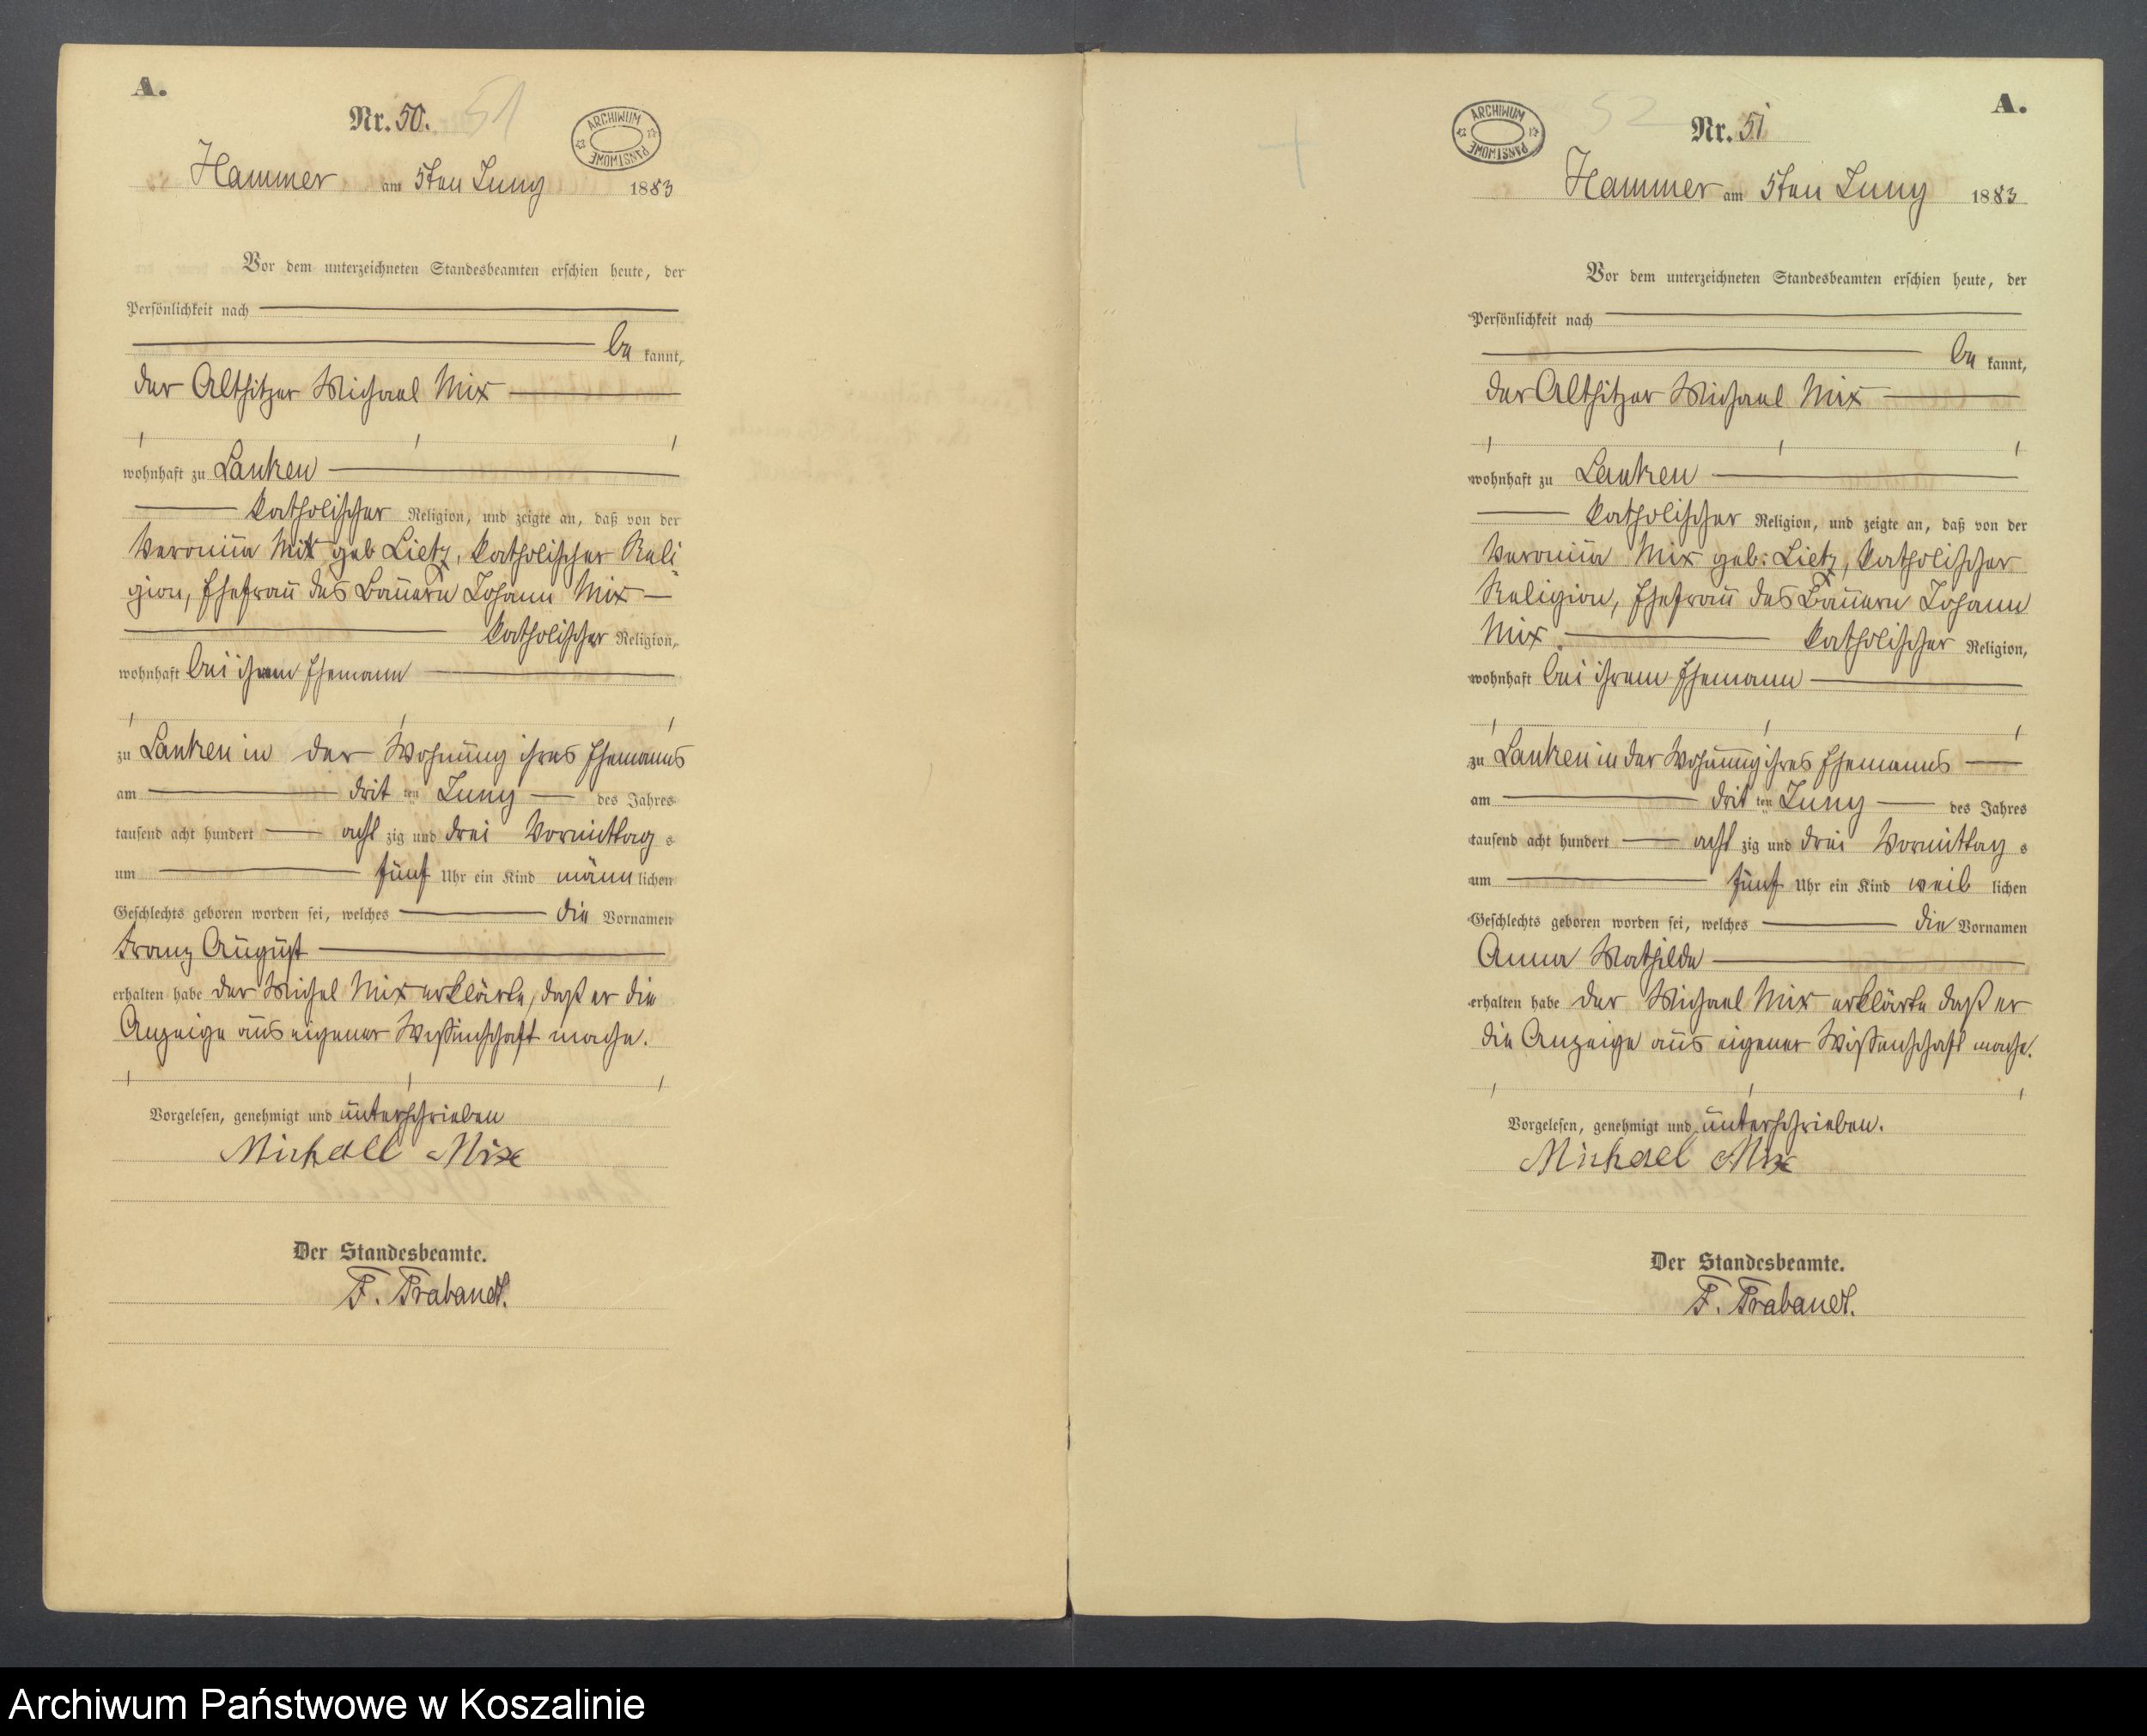 A.
Nr. 50.
51
ARCHIWUM PAŃSTWOWE
Hammer am 5ten Juny 1883
Vor dem unterzeichneten Standesbeamten erschien heute, der
Persönlichkeit nach
be kannt,
der Altsitzer Michael Mix
wohnhaft zu Lanken
katholischer Religion, und zeigte an, daß von der
Veronika Mix geb Lietz, katholischer Reli-
gion, Ehefrau des Bauern Johann Mix
katholischer Religion,
wohnhaft bei ihrem Ehemann
zu Lanken in der Wohnung ihres Ehemanns
am drit ten Juny des Jahres
tausend acht hundert acht zig und drei Vormittag s
um fünf Uhr ein Kind männ lichen
Geschlechts geboren worden sei, welches die Vornamen
Franz August
erhalten habe der Michel Mix erklärte, daß er die
Anzeige aus eigener Wissenschaft mache.
Vorgelesen, genehmigt und unterschrieben
Michall Mix
Der Standesbeamte.
F. Brabandt.
A.
Nr. 51
52
ARCHIWUM PAŃSTWOWE
Hammer am 5ten Juny 1883
Vor dem unterzeichneten Standesbeamten erschien heute, der
Persönlichkeit nach
be kannt,
der Altsitzer Michael Mix
wohnhaft zu Lanken
katholischer Religion, und zeigte an, daß von der
Veronika Mix geb: Lietz, katholischer
Religion, Ehefrau des Bauern Johann
Mix. katholischer Religion,
wohnhaft bei ihrem Ehemann
zu Lanken in der Wohnung ihres Ehemanns
am drit ten Juny des Jahres
tausend acht hundert acht zig und drei Vormittag s
um fünf Uhr ein Kind weib lichen
Geschlechts geboren worden sei, welches die Vornamen
Anna Mathilde
erhalten habe der Michael Mix erklärte daß er
die Anzeige aus eigener Wissenschaft mache.
Vorgelesen, genehmigt und unterschrieben.
Michael Mix
Der Standesbeamte.
F. Brabandt.
Archiwum Państwowe w Koszalinie